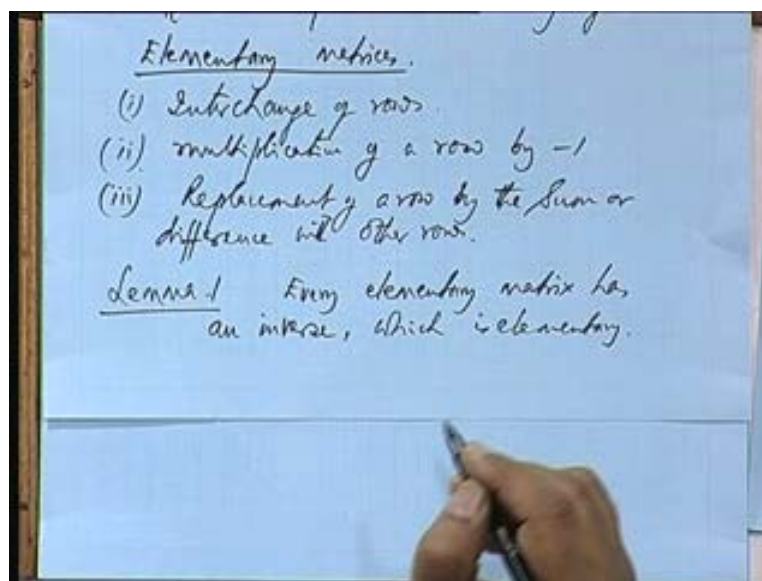 Elementary matrices.
(i) Interchange of rows.
(ii) multiplication of a row by -1
(iii) Replacement of a row by the Sum or
difference with other rows.
Lemma 1 Every elementary matrix has
an inverse, which is elementary.